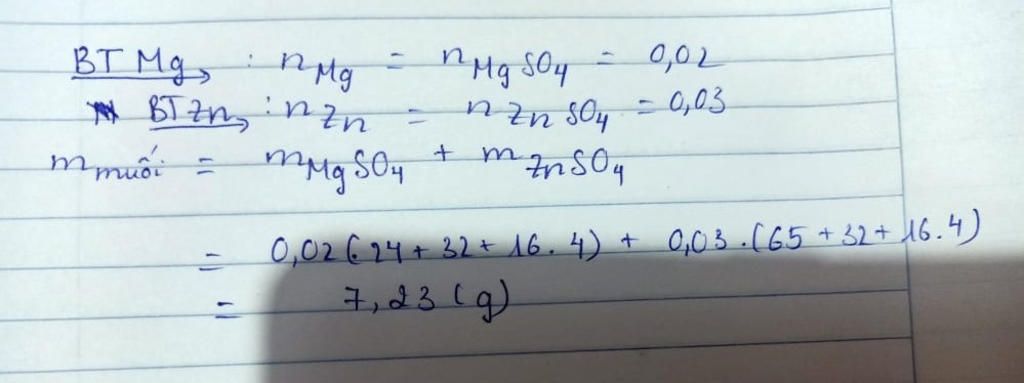 BT Mg : n Mg = n MgSO4 = 0,02
BT Zn : n Zn = n ZnSO4 = 0,03
m muối = m MgSO4 + m ZnSO4
= 0,02(.24 + 32 + 16.4) + 0,03.(65 + 32 + 16.4)
= 7,23 (g)